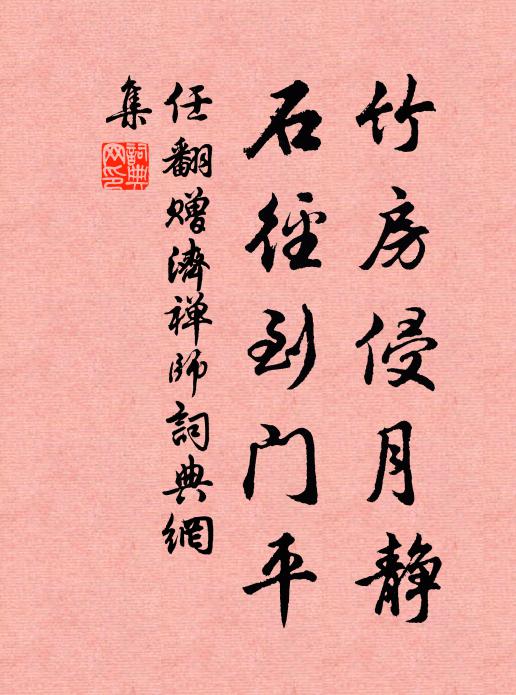 竹房侵月静
石徑到门平
任翻赠濟禅师詞典網
集
詞典
网印